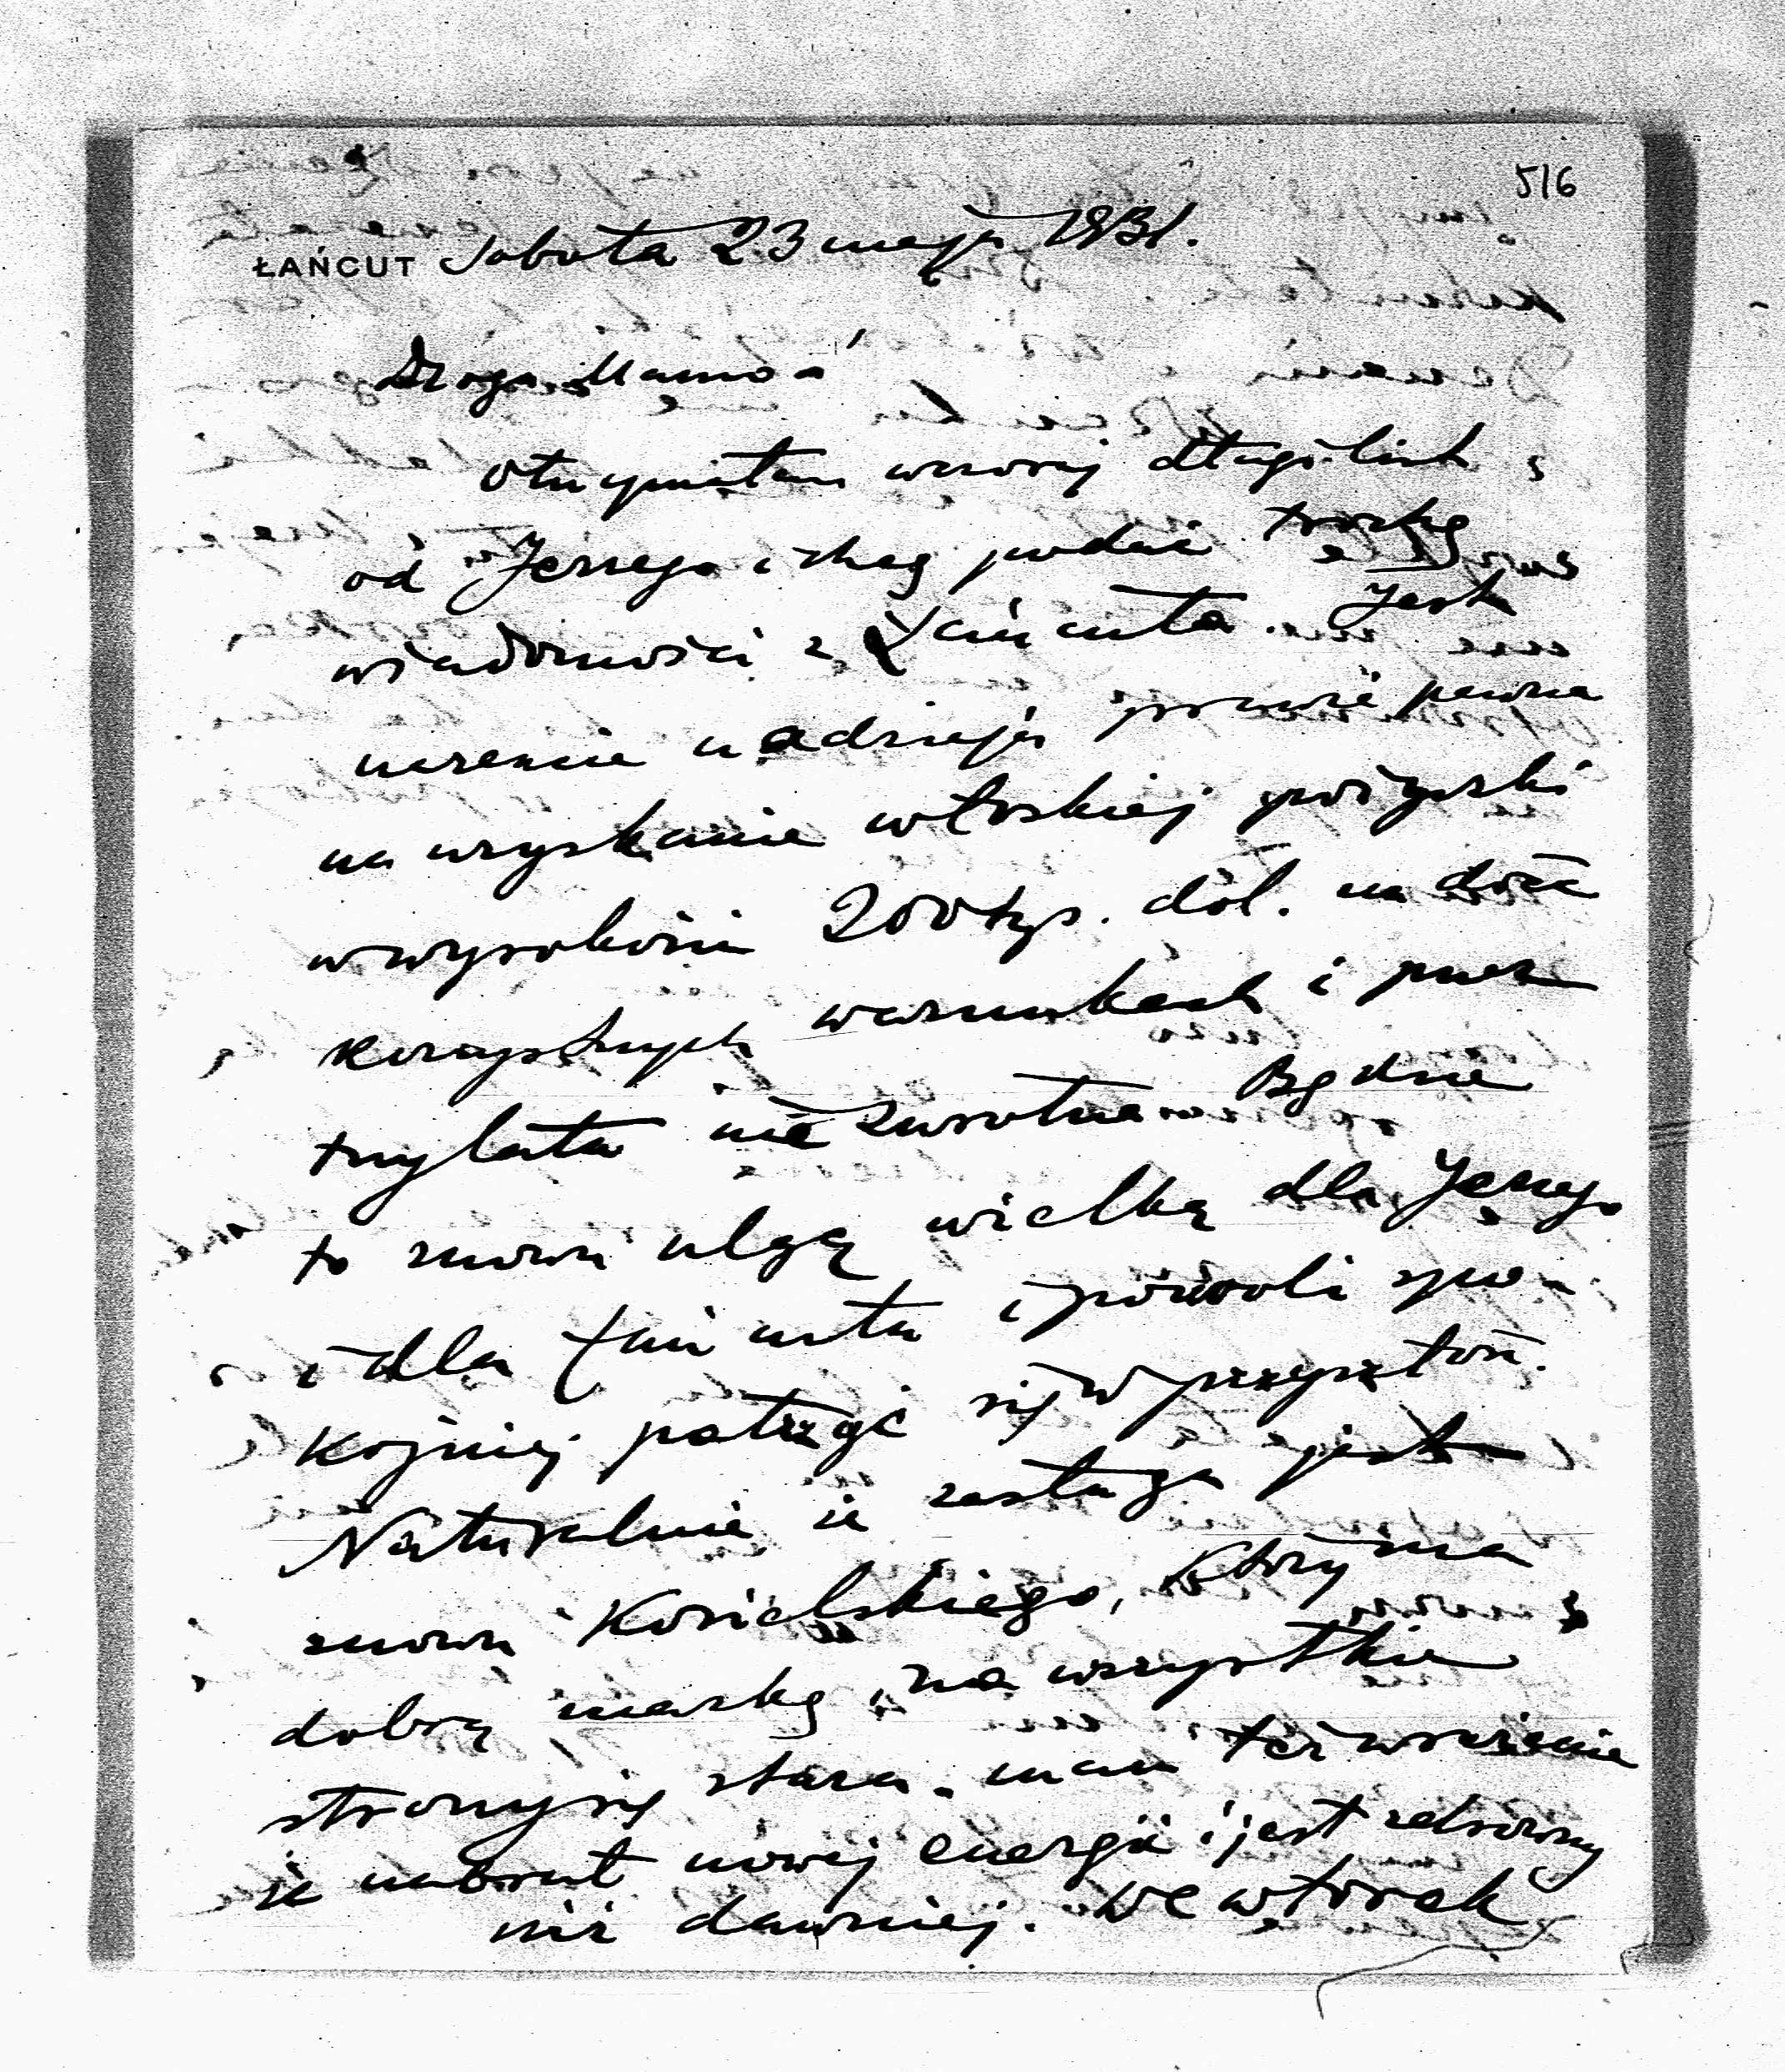 516
ŁAŃCUT Sobota 23 maja 1931.
Droga Mamo
Otrzymałam wczoraj długi list
od Jerzego i chcę podać trochę
wiadomości z Łańcuta. Jest
nareszcie nadzieja prawie pewna
na uzyskanie włoskiej pożyczki
w wysokości 200 tys. dol. na dość
korzystnych warunkach i przez
trzy lata nie zwrotna. Będzie
to znowu ulgą wielką dla Jerzego
i dla Łańcuta i pozwoli spo-
kojniej patrzyć się w przyszłość.
Naturalnie że zasługa jest
znowu Kosielskiego, który ma
dobrą markę, na wszystkie
strony się stara. mam też wrażenie
że nabrał nowej energii i jest zdrowszy
niż dawniej. We wtorek